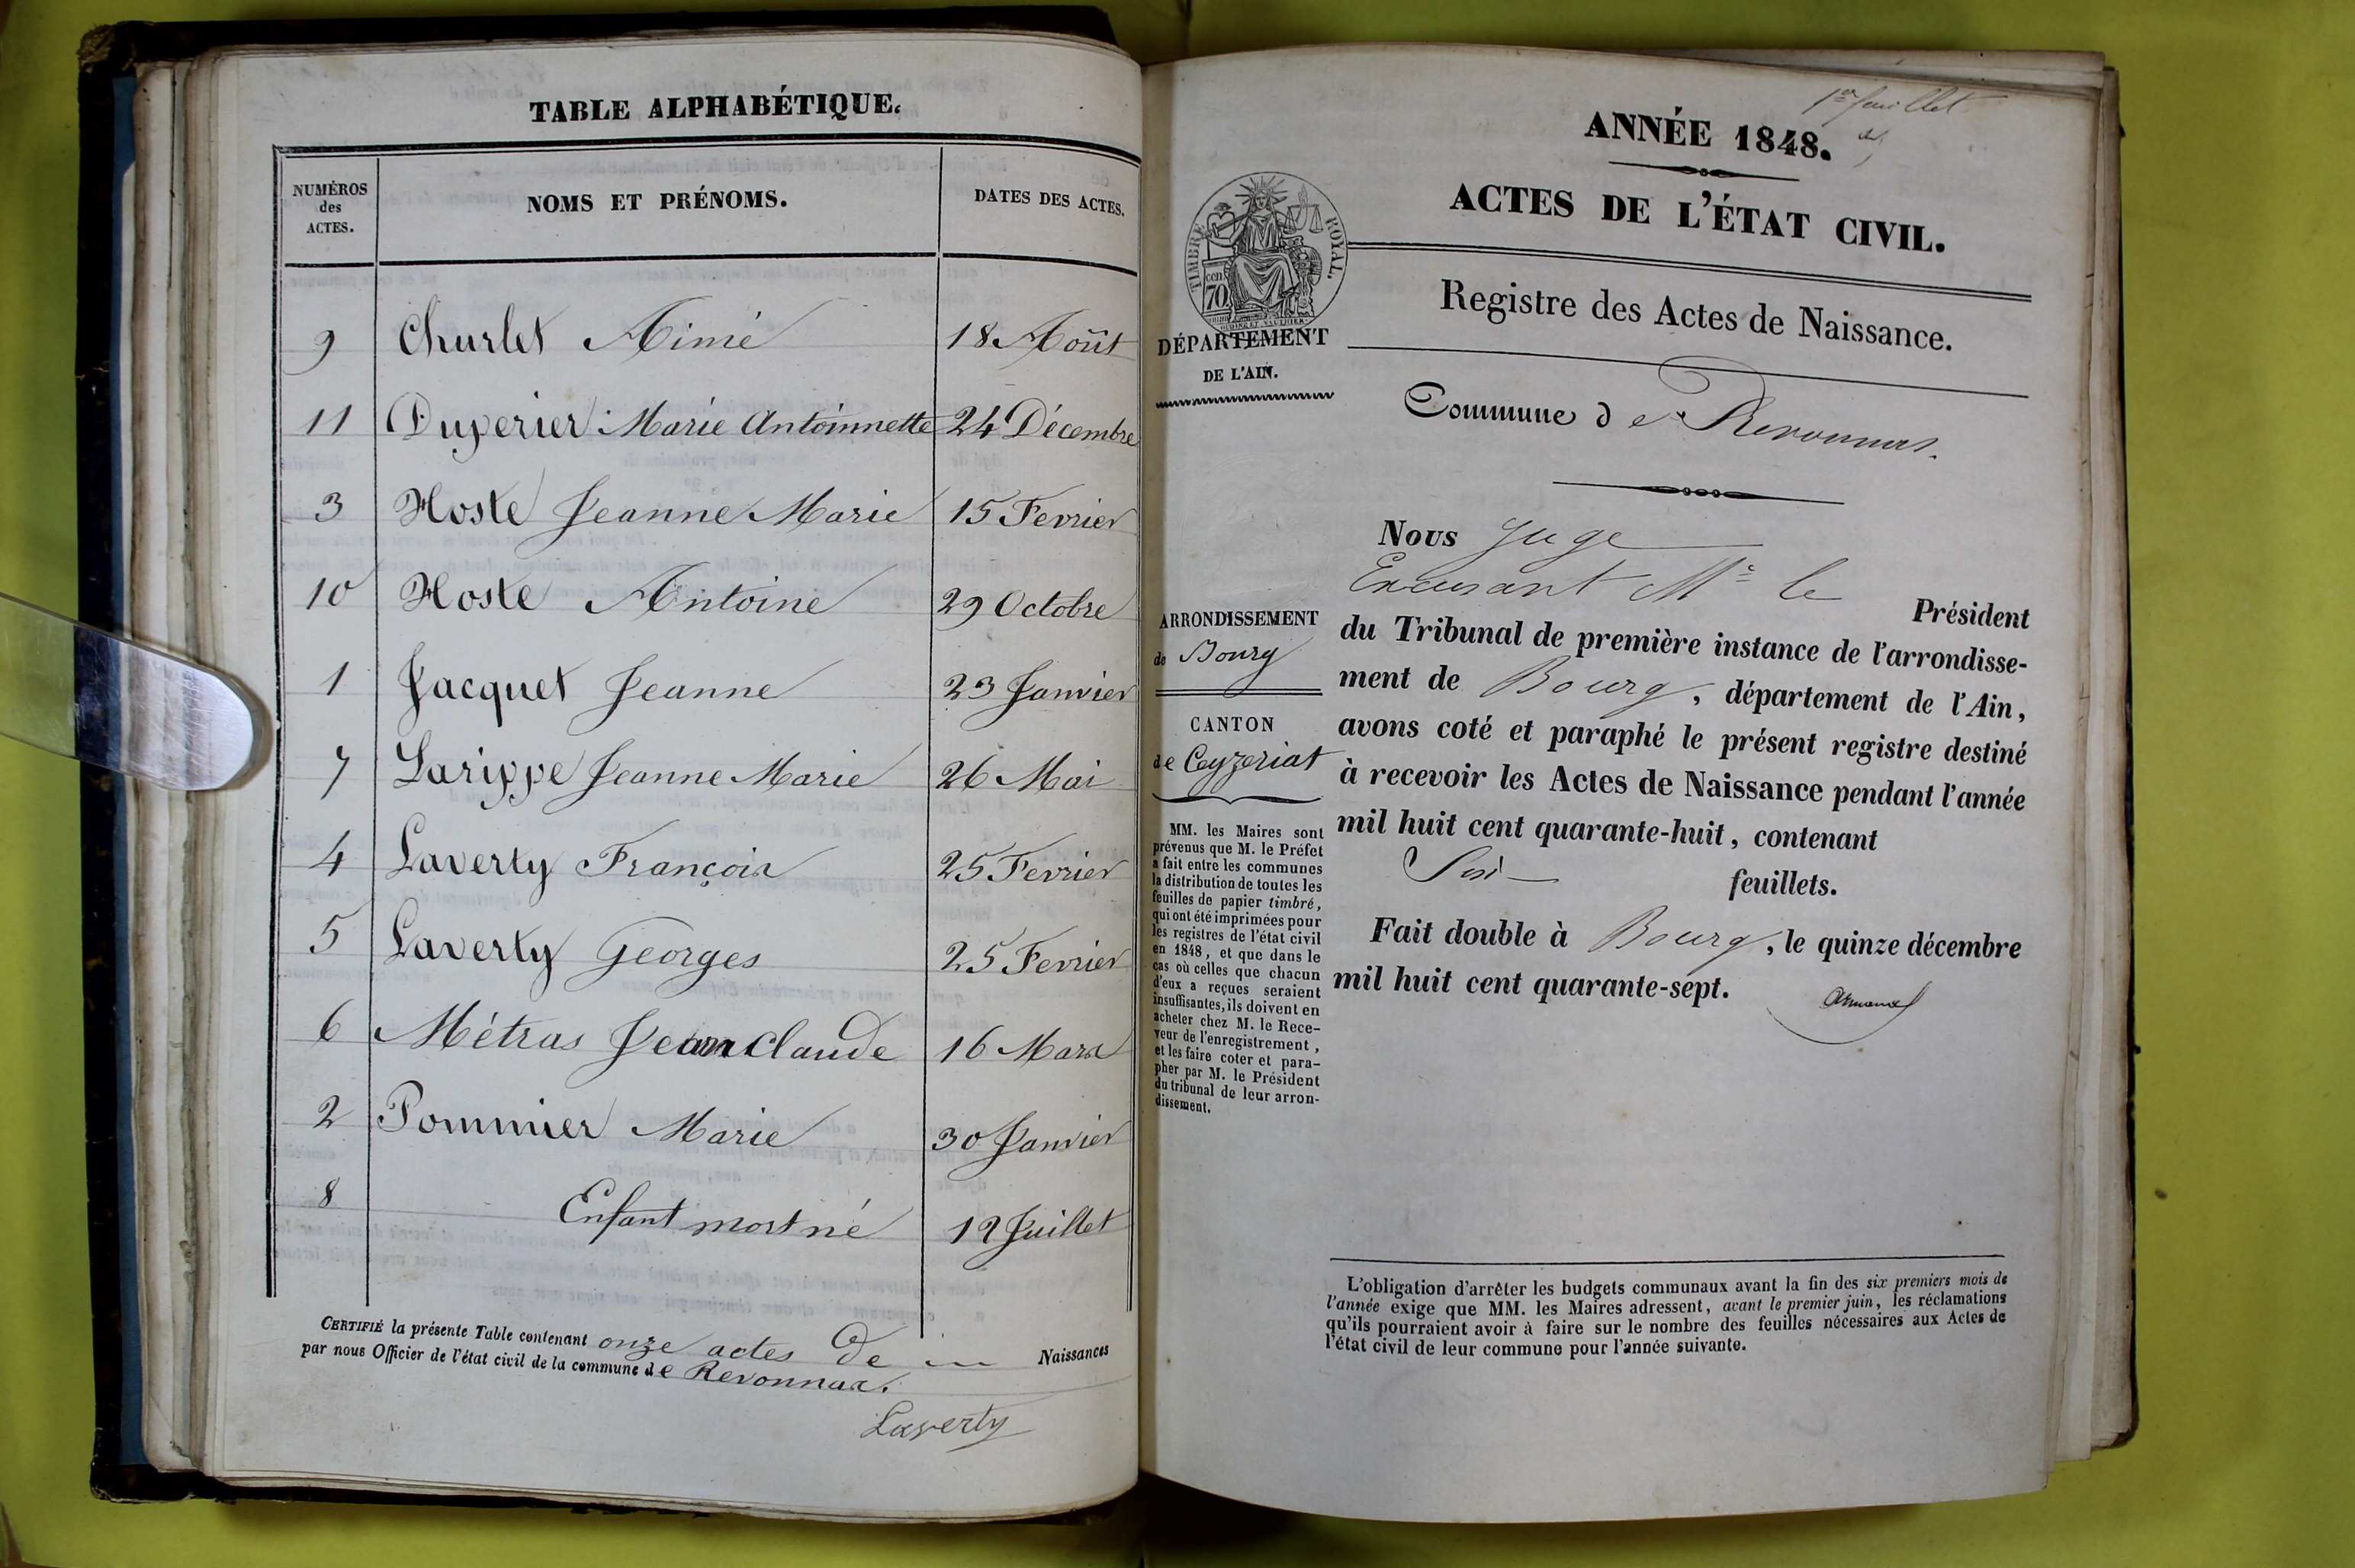 TABLE ALPHABÉTIQUE.
NUMÉROS des ACTES. NOMS ET PRÉNOMS. DATES DES ACTES.
9 Churlet Aimé 18 Août
11 Duperier Marie Antoinnette 24 Décembre
3 Hoste Jeanne Marie 15 Fevrier
10 Hoste Antoine 29 Octobre
1 Jacquet Jeanne 23 Janvier
7 Larippe Jeanne Marie 26 Mai
4 Laverty François 25 Fevrier
5 Laverty Georges 25 Fevrier
6 Métras Jean Claude 16 Mars
2 Pommier Marie 30 Janvier
8 Enfant mort né 12 Juillet
CERTIFIÉ la présente Table contenant onze actes De Naissances
par nous Officier de l'état civil de la commune de Revonnas.
Laverty
1er feuillet
ANNÉE 1848.
ACTES DE L'ÉTAT CIVIL.
TIMBRE ROYAL.
70 cen.
DÉPARTEMENT
DE L'AIN.
Registre des Actes de Naissance.
Commune de Revonnas.
ARRONDISSEMENT
de Bourg
CANTON
de Ceyzeriat
MM. les Maires sont
prévenus que M. le Préfet
a fait entre les communes
la distribution de toutes les
feuilles de papier timbré,
qui ont été imprimées pour
les registres de l'état civil
en 1848, et que dans le
cas où celles que chacun
d'eux a reçues seraient
insuffisantes, ils doivent en
acheter chez M. le Rece-
veur de l'enregistrement,
et les faire coter et para-
pher par M. le Président
du tribunal de leur arron-
dissement.
Nous Juge
Excusant Mr le Président
du Tribunal de première instance de l'arrondisse-
ment de Bourg, département de l'Ain,
avons coté et paraphé le présent registre destiné
à recevoir les Actes de Naissance pendant l'année
mil huit cent quarante-huit, contenant
feuillets.
Fait double à Bourg, le quinze décembre
mil huit cent quarante-sept.
L'obligation d'arrêter les budgets communaux avant la fin des six premiers mois de
l'année exige que MM. les Maires adressent, avant le premier juin, les réclamations
qu'ils pourraient avoir à faire sur le nombre des feuilles nécessaires aux Actes de
l'état civil de leur commune pour l'année suivante.